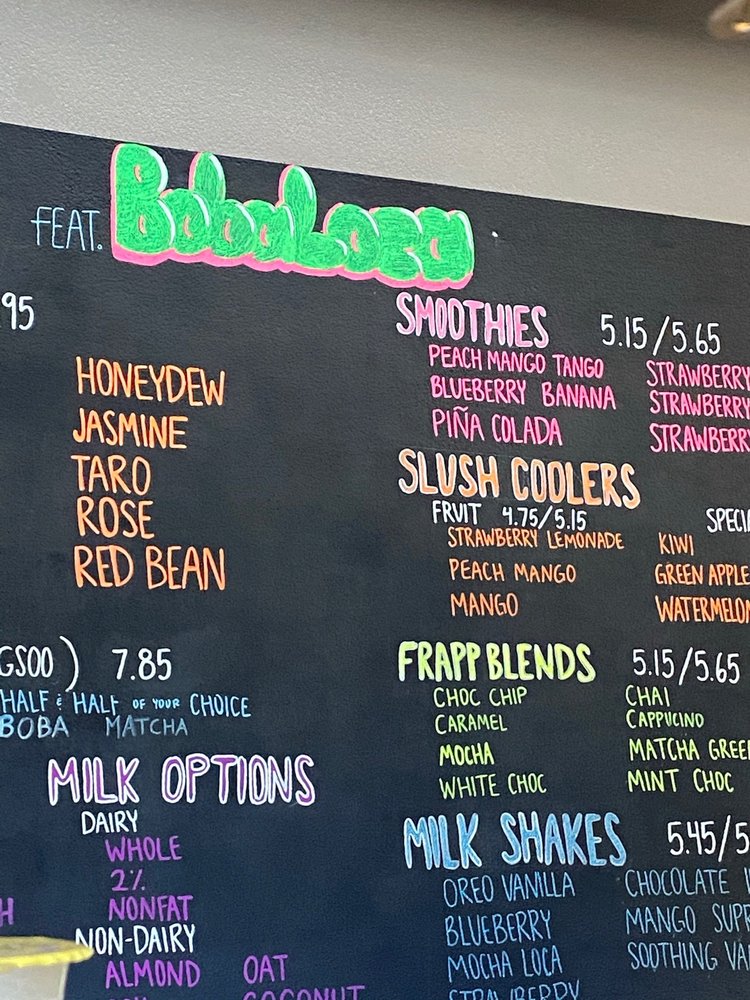 FEAT. BobaLoca
95
HONEYDEW
JASMINE
TARO
ROSE
RED BEAN
GSOO) 7.85
HALF & HALF OF YOUR CHOICE
BOBA MATCHA
MILK OPTIONS
DAIRY
WHOLE
2%
NONFAT
NON-DAIRY
ALMOND OAT
COCONUT
SMOOTHIES 5.15/5.65
PEACH MANGO TANGO STRAWBERRY
BLUEBERRY BANANA STRAWBERRY
PIÑA COLADA STRAWBERRY
SLUSH COOLERS
FRUIT 4.75/5.15
STRAWBERRY LEMONADE KIWI
PEACH MANGO GREEN APPLE
MANGO WATERMELON
FRAPP BLENDS 5.15/5.65
CHOC CHIP CHAI
CARAMEL CAPPUCINO
MOCHA MATCHA GREE
WHITE CHOC MINT CHOC
MILK SHAKES 5.45/5
OREO VANILLA CHOCOLATE
BLUEBERRY MANGO SUP
MOCHA LOCA SOOTHING VA
STRAWBERRY